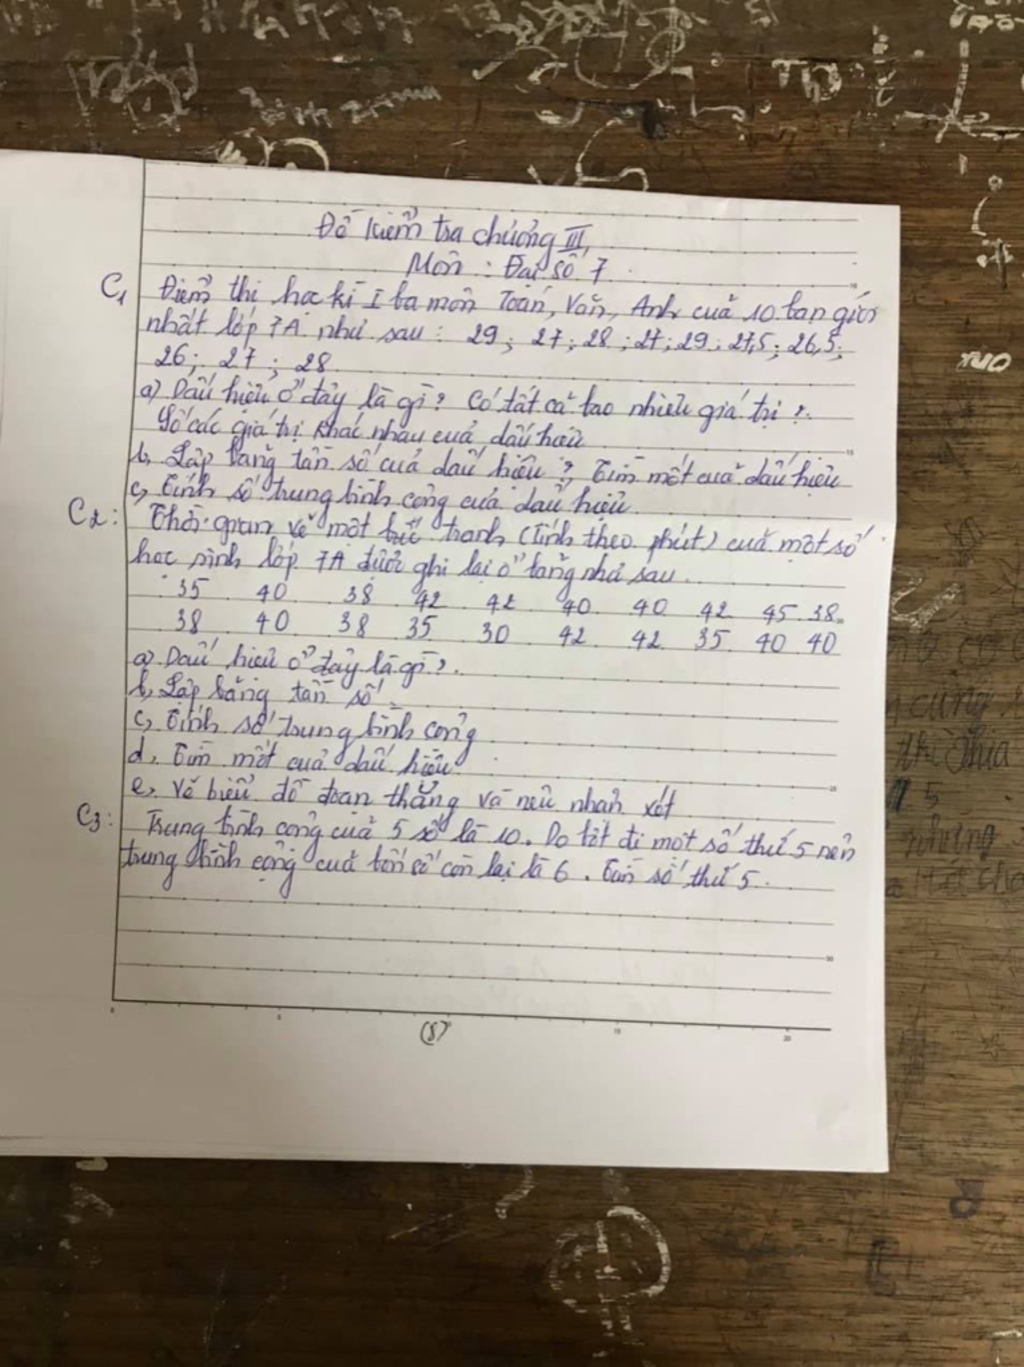 Đề kiểm tra chương III
Môn : Đại số 7
C1 Điểm thi học kì I ba môn Toán, Văn, Anh của 10 bạn giỏi
nhất lớp 7A như sau : 29 ; 27 ; 28 ; 27 ; 29 ; 27,5 ; 26,5 ;
26 ; 27 ; 28
a) Dấu hiệu ở đây là gì ? Có tất cả bao nhiêu giá trị ?
Số các giá trị khác nhau của dấu hiệu
b, Lập bảng tần số của dấu hiệu ? Tìm mốt của dấu hiệu
c, Tính số trung bình cộng của dấu hiệu
C2 : Thời gian vẽ một bức tranh (tính theo phút) của một số
học sinh lớp 7A được ghi lại ở bảng như sau
35 40 38 42 42 40 40 42 45 38
38 40 38 35 30 42 42 35 40 40
a) Dấu hiệu ở đây là gì ?
b, Lập bảng tần số
c, Tính số trung bình cộng
d, Tìm mốt của dấu hiệu
e, Vẽ biểu đồ đoạn thẳng và nêu nhận xét
C3 : Trung bình cộng của 5 số là 10. Do bớt đi một số thứ 5 nên
trung bình cộng của bốn số còn lại là 6. Tìm số thứ 5.
(8)